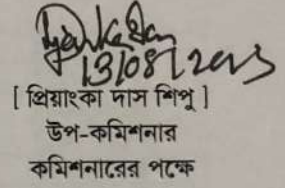 13/08/2023
[ প্রিয়াংকা দাস শিপু ]
উপ-কমিশনার
কমিশনারের পক্ষে